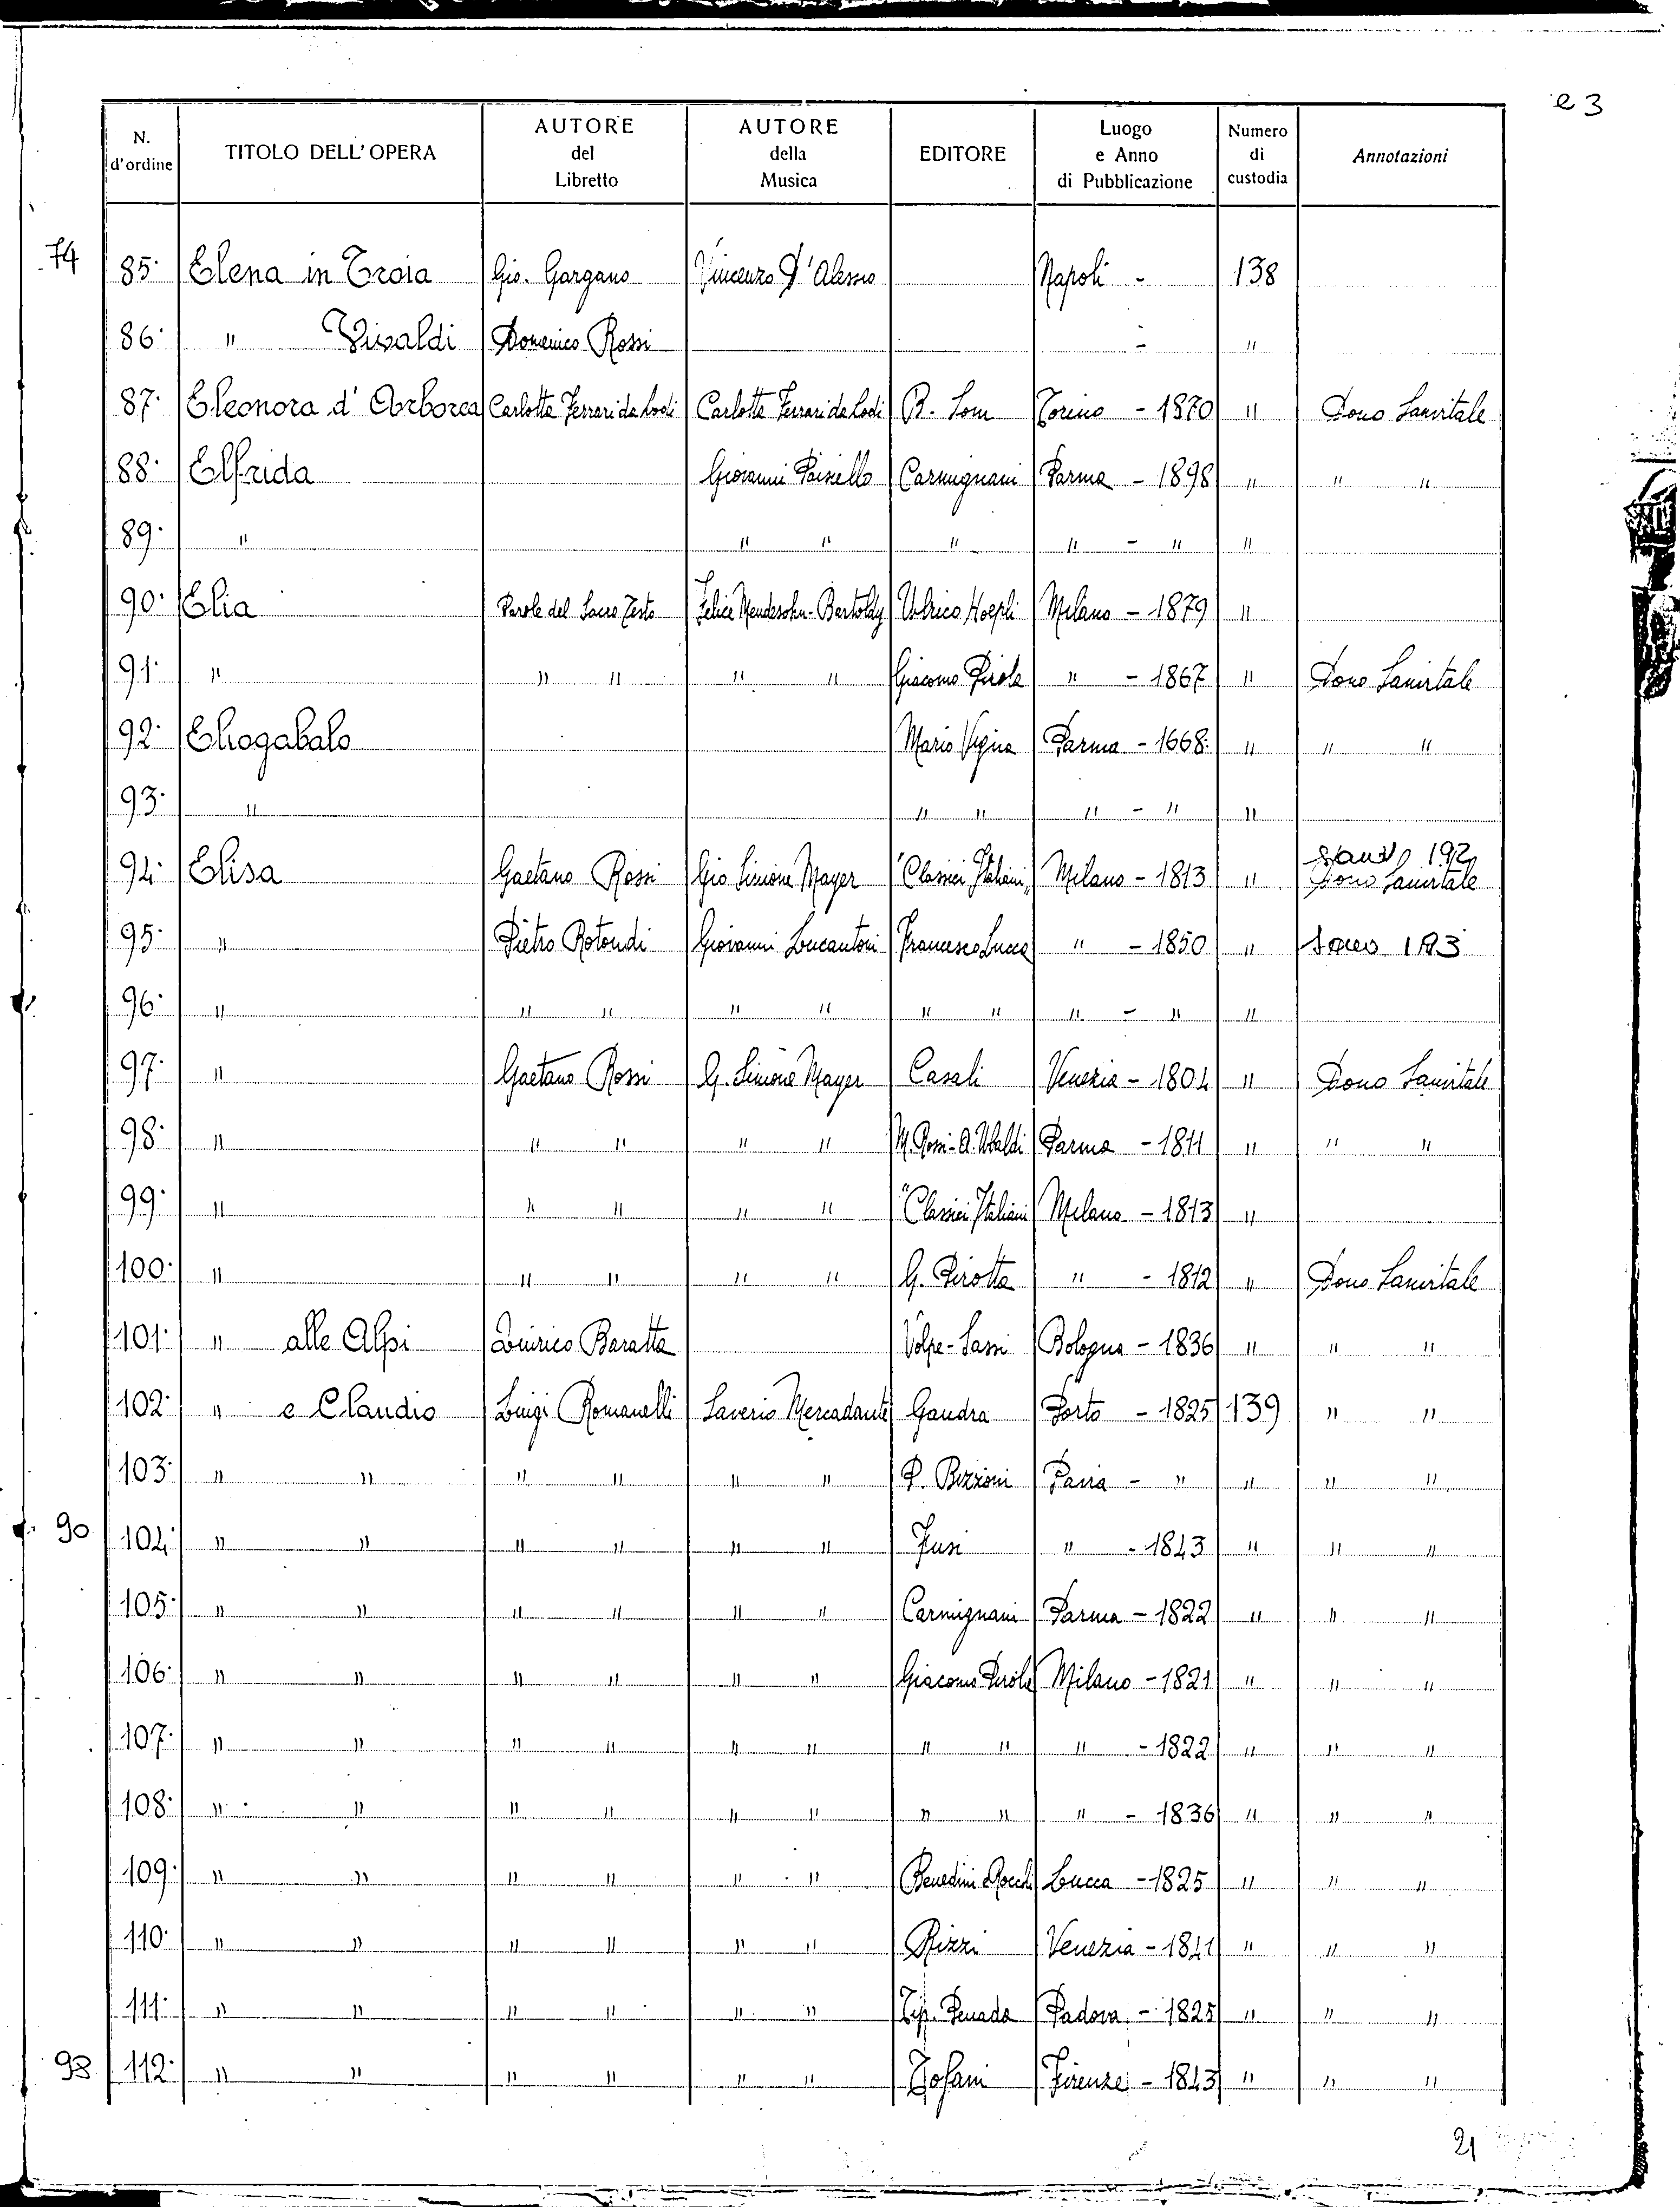 e 3
N. d'ordine TITOLO DELL'OPERA AUTORE del Libretto AUTORE della Musica EDITORE Luogo e Anno di Pubblicazione Numero di custodia Annotazioni
74 85· Elena in Troia Gio. Gargano Vincenzo D'Alessio Napoli - 138
86· " Vivaldi Domenico Rossi - "
87· Eleonora d'Arborea Carlotta Ferrari da Lodi Carlotta Ferrari da Lodi B. Som Torino - 1870 " Dono Sanvitale
88· Elfrida Giovanni Paisiello Carmignani Parma - 1898 " " "
89· " " " " " - " "
90· Elia Parole del Sacro Testo Felice Mendesohn-Bartoldy Ulrico Hoepli Milano - 1879 "
91· " " " " " Giacomo Pirola " - 1867 " Dono Sanvitale
92· Eliogabalo Mario Vigna Parma - 1668· " " "
93· " " " " - " "
94· Elisa Gaetano Rossi Gio Simone Mayer "Classici Italiani" Milano - 1813 " 192 Dono Sanvitale
95· " Pietro Rotondi Giovanni Lucantoni Francesco Lucca " - 1850 " 183
96· " " " " " " " " - " "
97· " Gaetano Rossi G. Simone Mayer Casali Venezia - 1804 " Dono Sanvitale
98· " " " " " M. Rossi-A. Ubaldi Parma - 1811 " " "
99· " " " " " "Classici Italiani Milano - 1813 "
100· " " " " " G. Pirotta " - 1812 " Dono Sanvitale
101· " alle Alpi Quirico Baratta Volpe-Sassi Bologna - 1836 " " "
102· " e Claudio Luigi Romanelli Saverio Mercadante Gandra Porto - 1825 139 " "
103· " " " " " " P. Bizzoni Pavia - " " " "
90 104· " " " " " " Fusi " - 1843 " " "
105· " " " " " " Carmignani Parma - 1822 " " "
106· " " " " " " Giacomo Pirola Milano - 1821 " " "
107· " " " " " " " " " - 1822 " " "
108· " " " " " " " " " - 1836 " " "
109· " " " " " " Benedini Rocchi Lucca - 1825 " " "
110· " " " " " " Rizzi Venezia - 1841 " " "
111· " " " " " " Tip. Penada Padova - 1825 " " "
98 112· " " " " " " Tofani Firenze - 1843 " " "
21